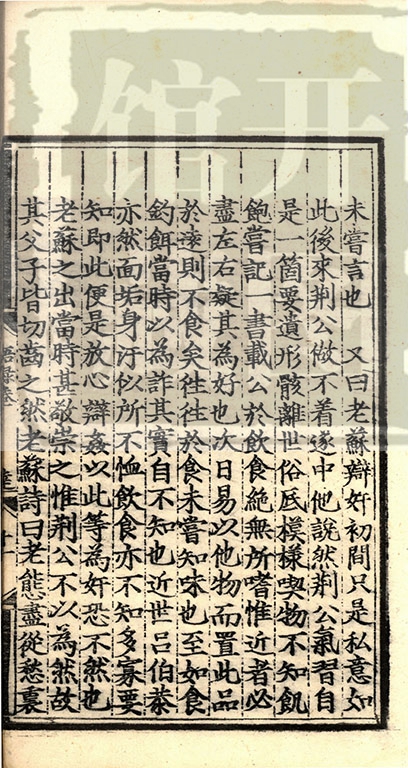 未嘗言也　又曰老蘇辯奸初間只是私意如
此後來荆公做不着遂中他說然荆公氣習自
是一箇要遺形骸離世俗底模樣喫物不知飢
飽嘗記一書載公於飲食絶無所嗜惟近者必
盡左右疑其為好也次日易以他物而置此品
於遠則不食矣徃徃於食未嘗知味也至如食
釣餌當時以為詐其實自不知也近世呂伯恭
亦然面垢身汙似所不恤飲食亦不知多寡要
知即此便是放心辯姦以此等為奸恐不然也
老蘇之出當時甚敬崇之惟荆公不以為然故
其父子皆切齒之然老蘇詩曰老態盡從愁裏
十一
开
馆